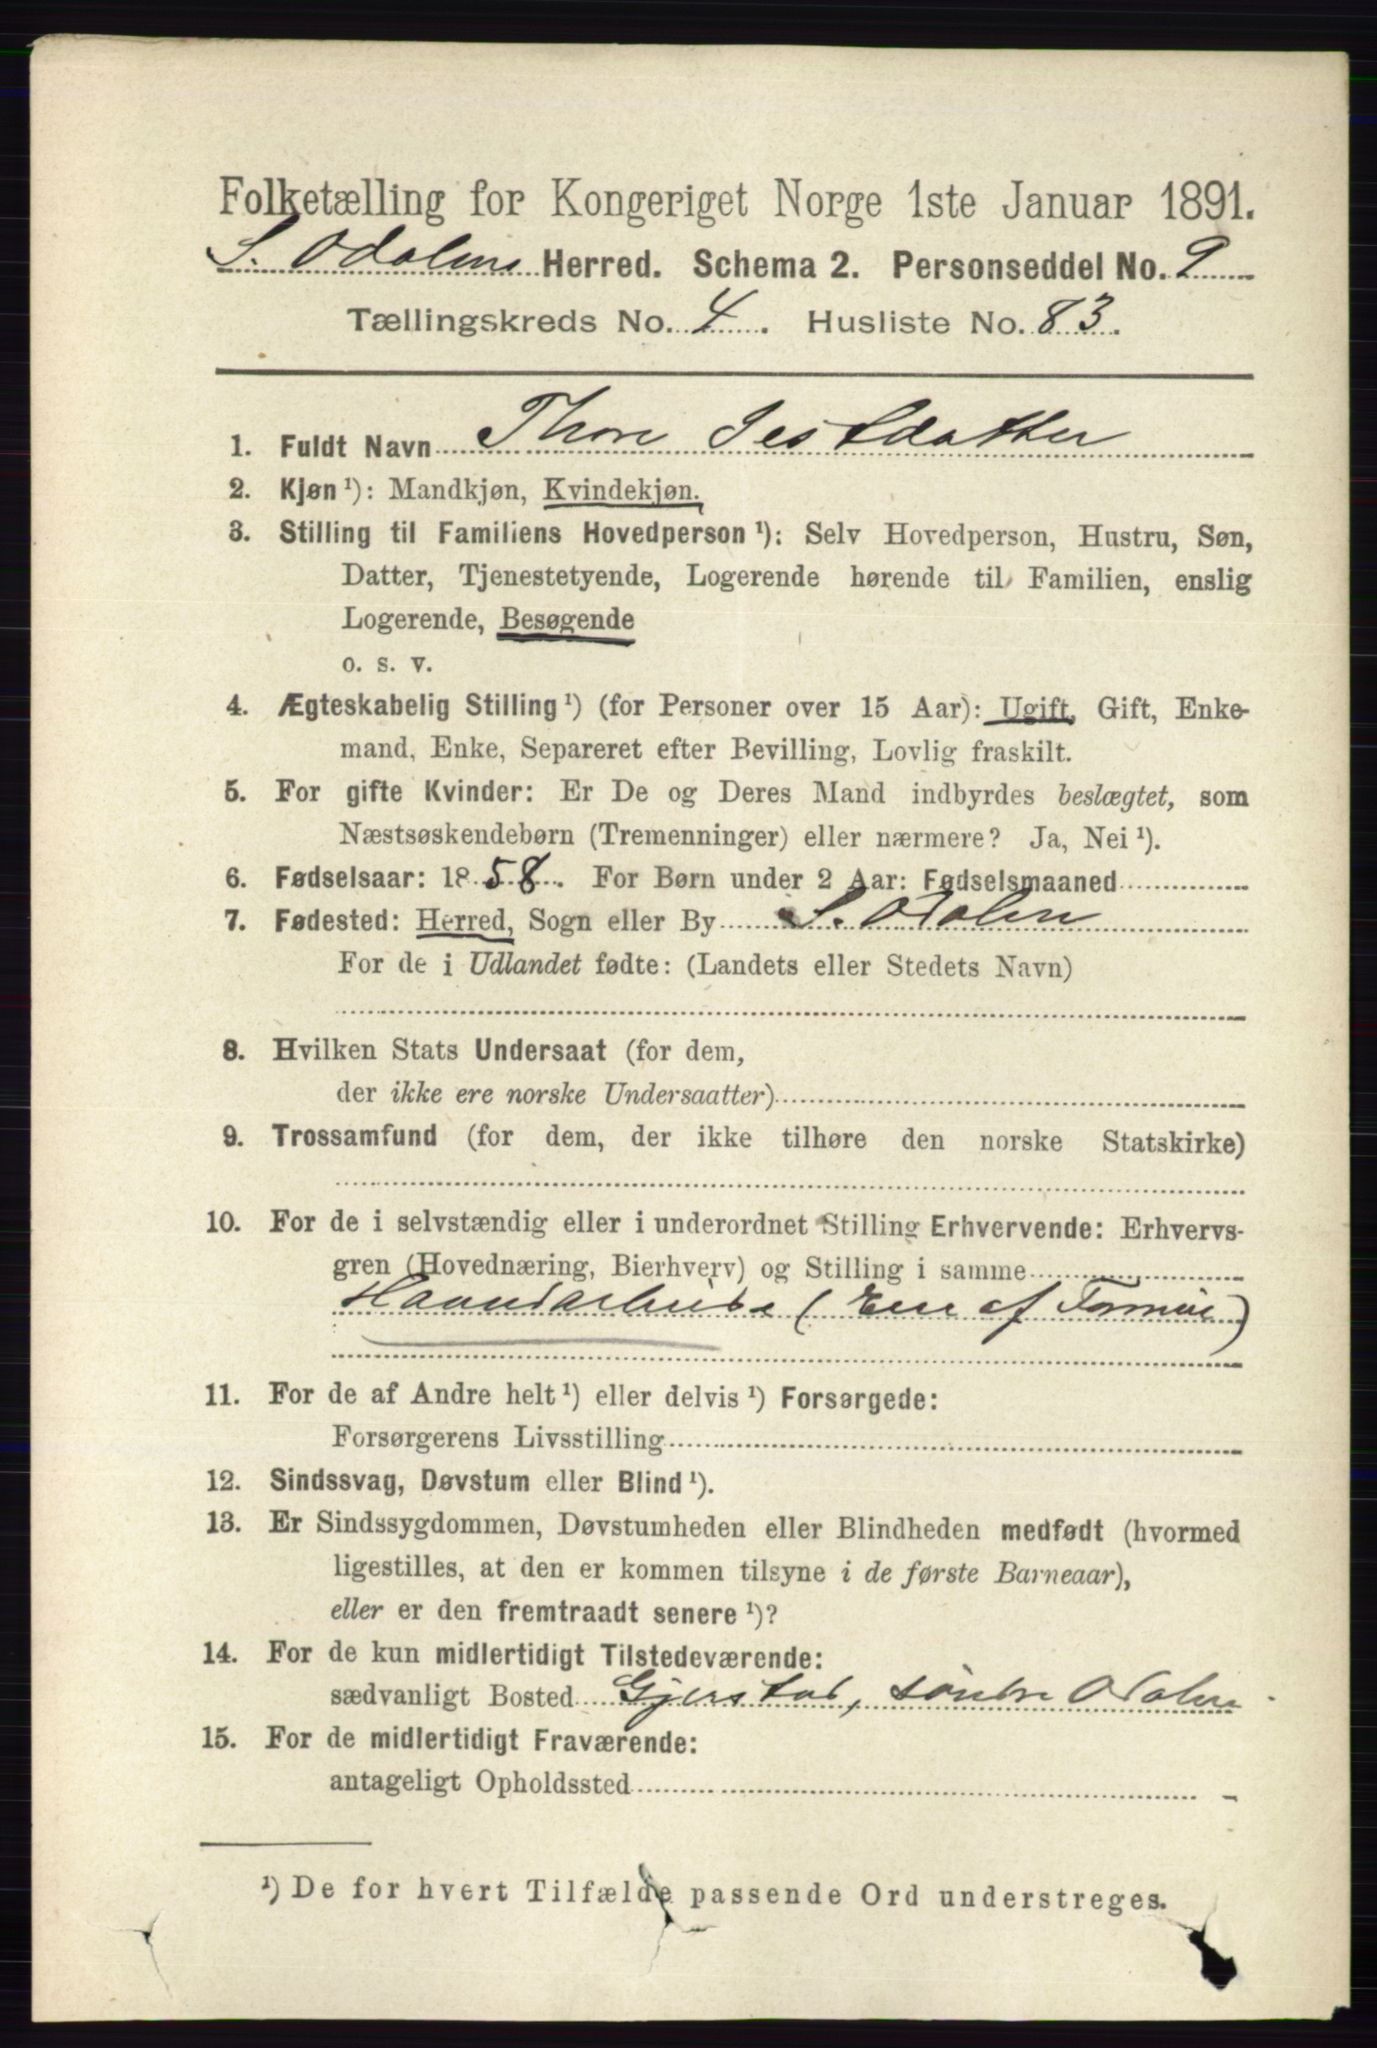 Folketælling for Kongeriget Norge 1ste Januar 1891.
S. Odalens Herred. Schema 2. Personseddel No. 9
Tællingskreds No. 4. Husliste No. 83.
1. Fuldt Navn Thore
2. Kjøn ¹): Mandkjøn, Kvindekjøn.
3. Stilling til Familiens Hovedperson ¹): Selv Hovedperson, Hustru, Søn,
Datter, Tjenestetyende, Logerende hørende til Familien, enslig
Logerende, Besøgende
o. s. v.
4. Ægteskabelig Stilling ¹) (for Personer over 15 Aar): Ugift, Gift, Enke-
mand, Enke, Separeret efter Bevilling, Lovlig fraskilt.
5. For gifte Kvinder: Er De og Deres Mand indbyrdes beslægtet, som
Næstsøskendebørn (Tremenninger) eller nærmere? Ja, Nei ¹).
6. Fødselsaar: 1858. For Børn under 2 Aar: Fødselsmaaned
7. Fødested: Herred, Sogn eller By S. Odalen
For de i Udlandet fødte: (Landets eller Stedets Navn)
8. Hvilken Stats Undersaat (for dem,
der ikke ere norske Undersaatter)
9. Trossamfund (for dem, der ikke tilhøre den norske Statskirke)
10. For de i selvstændig eller i underordnet Stilling Erhvervende: Erhvervs-
gren (Hovednæring, Bierhverv) og Stilling i samme
Haandarbeide (Eier af Formue)
11. For de af Andre helt ¹) eller delvis ¹) Forsørgede:
Forsørgerens Livsstilling
12. Sindssvag, Døvstum eller Blind ¹).
13. Er Sindssygdommen, Døvstumheden eller Blindheden medfødt (hvormed
ligestilles, at den er kommen tilsyne i de første Barneaar),
eller er den fremtraadt senere ¹)?
14. For de kun midlertidigt Tilstedeværende:
sædvanligt Bosted Gjerstad, søndre Odalen
15. For de midlertidigt Fraværende:
antageligt Opholdssted
¹) De for hvert Tilfælde passende Ord understreges.